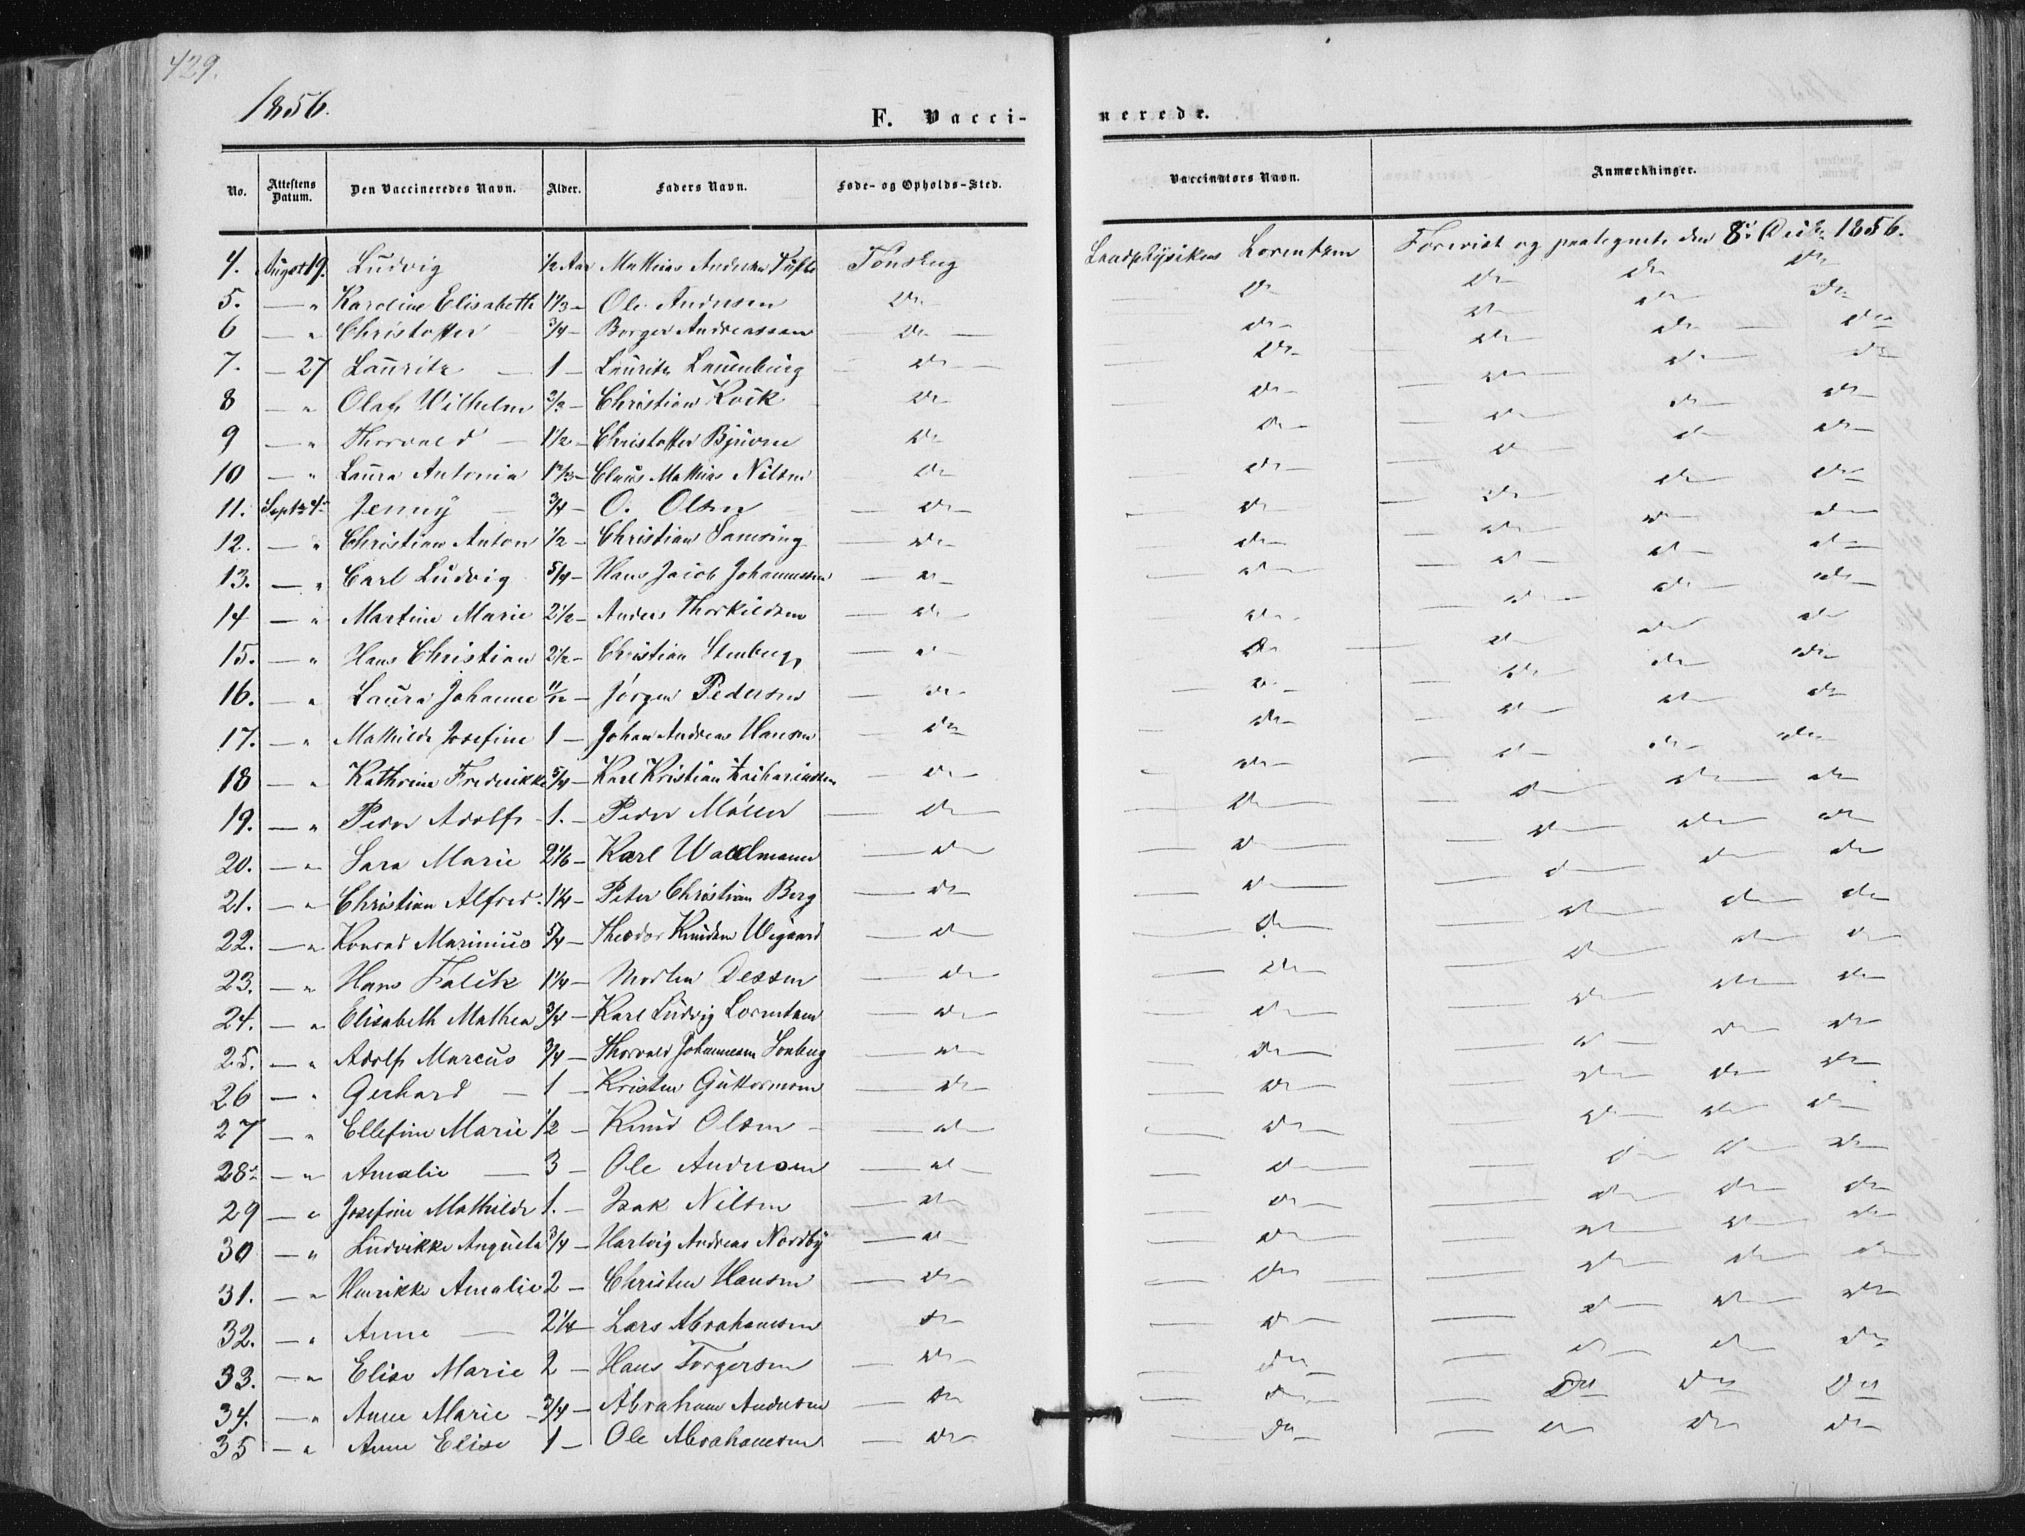 429.
1856.
F. Vaccinerede.
No. Attestens Datum. Den Vaccineredes Navn. Alder. Faders Navn. Føde- og Opholds-Sted. Vaccinators Navn. Anmærkninger.
4. August 19. Ludvig 1/2 Aar Mathias Andersen Tønsberg Landphysikus Lorentzen Forevist og paategnet den 8de 1856.
5. — " Karoline Elisabeth 1 1/3 — Ole Andersen Do Do Do Do Do
6 — " Christoffer 3/4 — Borger Andreassen Do Do Do Do Do
7. — 27 Lauritz — 1 — Lauritz Lauenburg Do Do Do Do Do
8 — " Olaf Wilhelm 2/3 — Christian Do Do Do Do Do
9 — " Thorvald — 1 1/2 — Christoffer Do Do Do Do Do
10 — " Laura Antonia — Claus Mathias Nilsen Do Do Do Do Do
11. Septr 4 Jenny — 3/4 — O. Olsen Do Do Do Do Do
12. — " Christian Anton 1/2 — Christian Samsing Do Do Do Do Do
13. — " Carl Ludvig 5/4 — Hans Jacob Johannessen Do Do Do Do Do
14 — " Martine Marie 2 1/2 — Anders Thorkildsen Do Do Do Do Do
15. — " Hans Christian 2 1/2 — Christian Stenberg Do Do Do Do Do
16. — " Laura Johanne 11/12 — Jørgen Pedersen Do Do Do Do Do
17. — " Mathilde Josefine 1 — Johan Andreas Hansen Do Do Do Do Do
18 — " Kathrine Fredrikke 5/4 — Karl Kristian Zachariassen Do Do Do Do Do
19. — " Peder Adolf — 1. — Peder Møller Do Do Do Do Do
20. — " Sara Marie 2 1/6 — Karl Do Do Do Do Do
21. — " Christian Alfred 1 1/4 — Peter Christian Berg Do Do Do Do Do
22. — " Konrad Marinius 5/4 — Theodor Knudsen Wegaard Do Do Do Do Do
23. — " Hans Falck 1 1/4 — Morten Dessen Do Do Do Do Do
24. — " Elisabeth Mathea 3/4 — Karl Ludvig Lorentzen Do Do Do Do Do
25. — " Adolf Marcus 3/4 — Thorvald Johannesen Do Do Do Do Do
26 — " Gerhard — 1 — Kristen Guttormsen Do Do Do Do Do
27 — " Ellefine Marie 1/2 — Knud Olsen — Do Do Do Do Do
28. — " Amalie — 3 — Ole Andersen Do Do Do Do Do
29 — " Josefine Mathilde 1. — Isak Nilsen Do Do Do Do Do
30 — " Ludvikke Augusta 3/4 — Hartvig Andreas Nordby Do Do Do Do Do
31. — " Henrikke Amalie 2 — Christen Hansen Do Do Do Do Do
32. — " Anne — 2 1/4 — Lars Abrahamsen Do Do Do Do Do
33. — " Elise Marie 2 — Hans Torgersen Do Do Do Do Do
34. — " Anne Marie — 3/4 — Abraham Andersen Do Do Do Do Do
35 — " Anne Elise 1 — Ole Abrahamsen Do Do Do Do Do